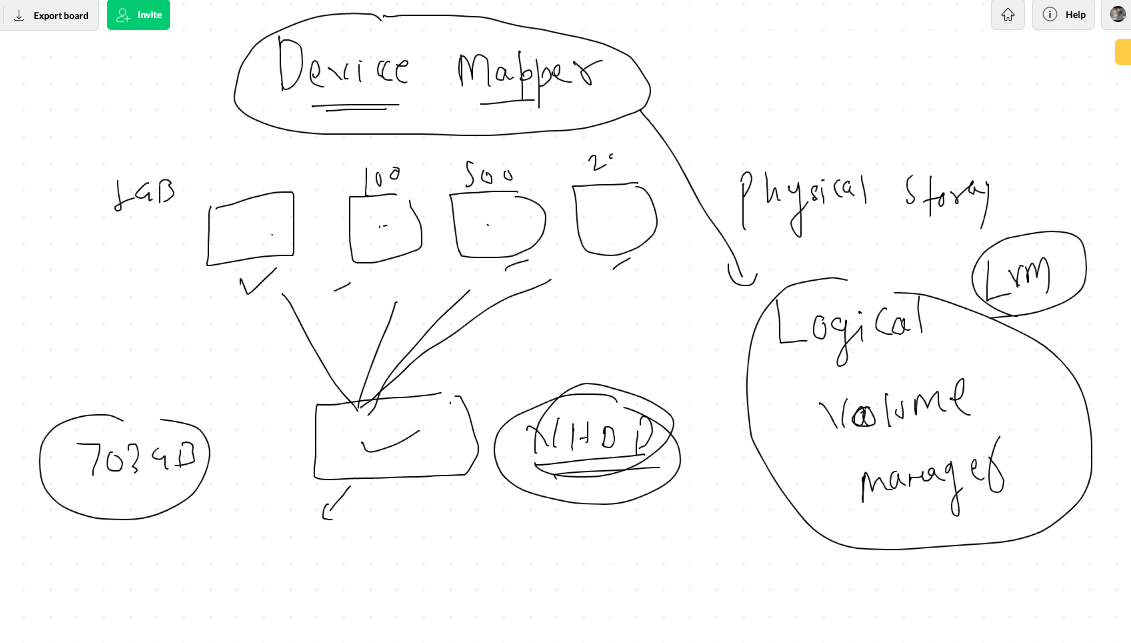 Export board
Invite
Help
Device Mapper
100
500
Physical Storag
LVM
Logical
Volume
manager